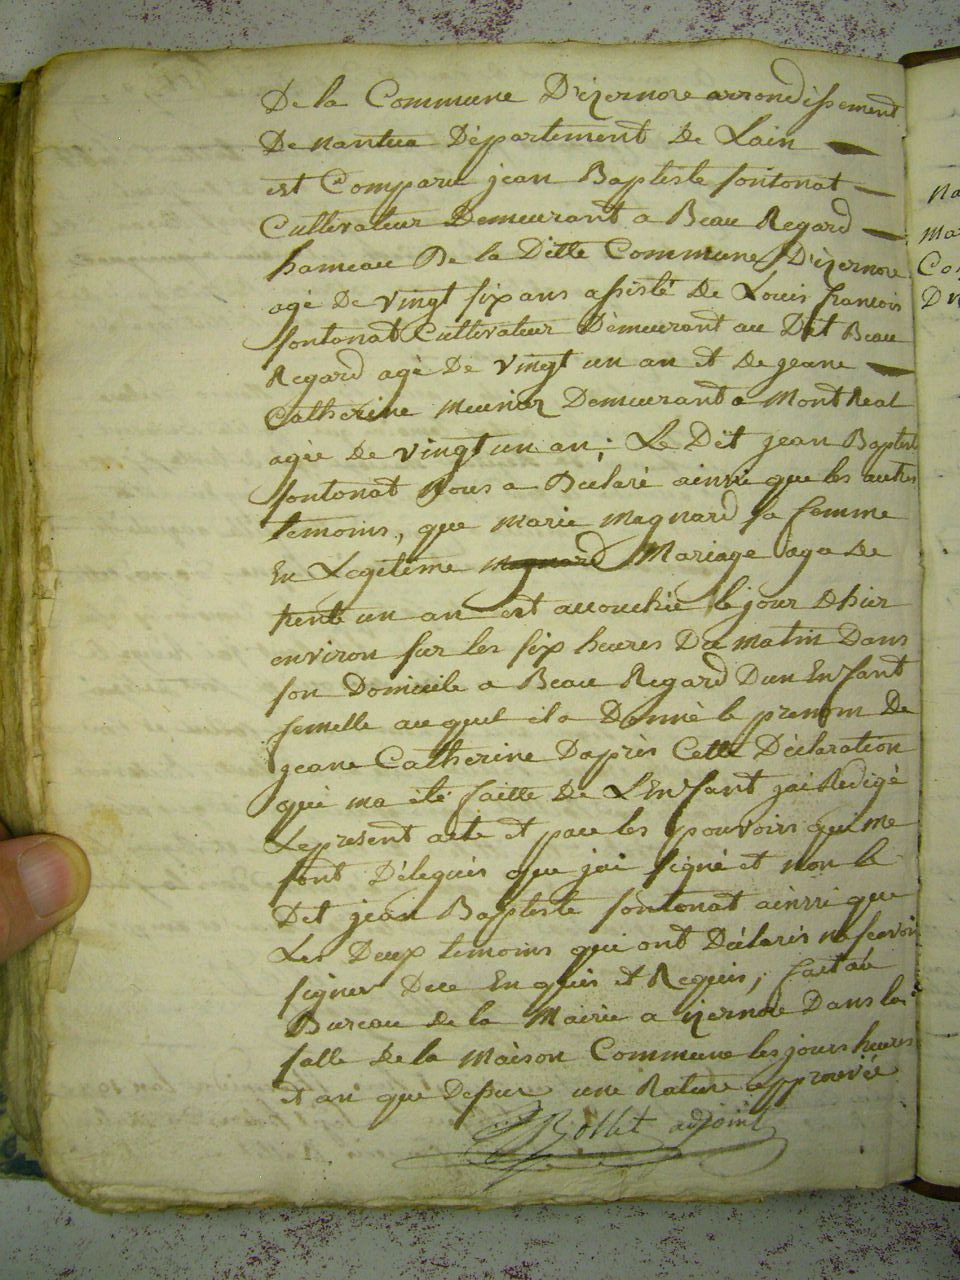 De la Commune D'izernore arrondissement
De nantua Département De Lain
est Comparu jean Baptiste fontonat
Cultivateur Demeurant a Beau Regard
hameau De la Ditte Commune D'izernore
agé De vingt six ans assisté De Louis francois
fontonat Cultivateur Demeurant au Dit Beau
Regard agé De vingt un an et De jeane
Catherine meunier Demeurant a Mont Real
agée De vingt un an ; Le Dit jean Baptiste
fontonat Nous a Déclaré ainsi que les autres
temoins, que marie magnard sa femme
En Legitime magnard Mariage aga de
trente un an est accouchée le jour Dhier
environ sur les six heures Du matin Dans
son Domicile a Beau Regard Dun Enfant
femelle au quel il a Donné le prenom De
jeane Catherine Daprès Cette Déclaration
qui ma été faitte De LEnfant jai Redigé
Le present acte et par les pouvoirs qui me
sont Délegués que jai signé et non le
Dit jean Baptiste fontonat ainsi que
Les Deux temoins qui ont Déclarés
signer De ce En quis et Requis, fait au
Bureau de la Mairie a izernore Dans la
salle de la Maison Commune les jours heures
et an que Dessus une Rature approuvée
Bollet adjoint
Na
Ma
Co